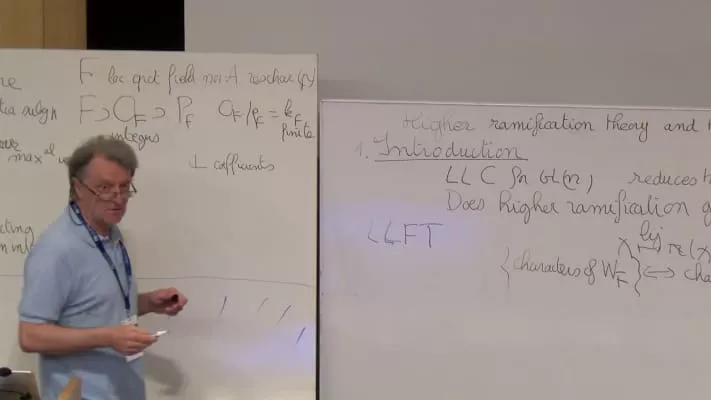 F loc cpct field non A reschar (p)
F ⊃ O_F ⊃ P_F O_F/P_F = k_F
integers finite
max^al
⊥ coefficients
Higher ramification theory and
1. Introduction
LLC for GL(n) reduces
Does higher ramification
LLFT
X bij π(X)
{characters of W_F} ⟷ cha